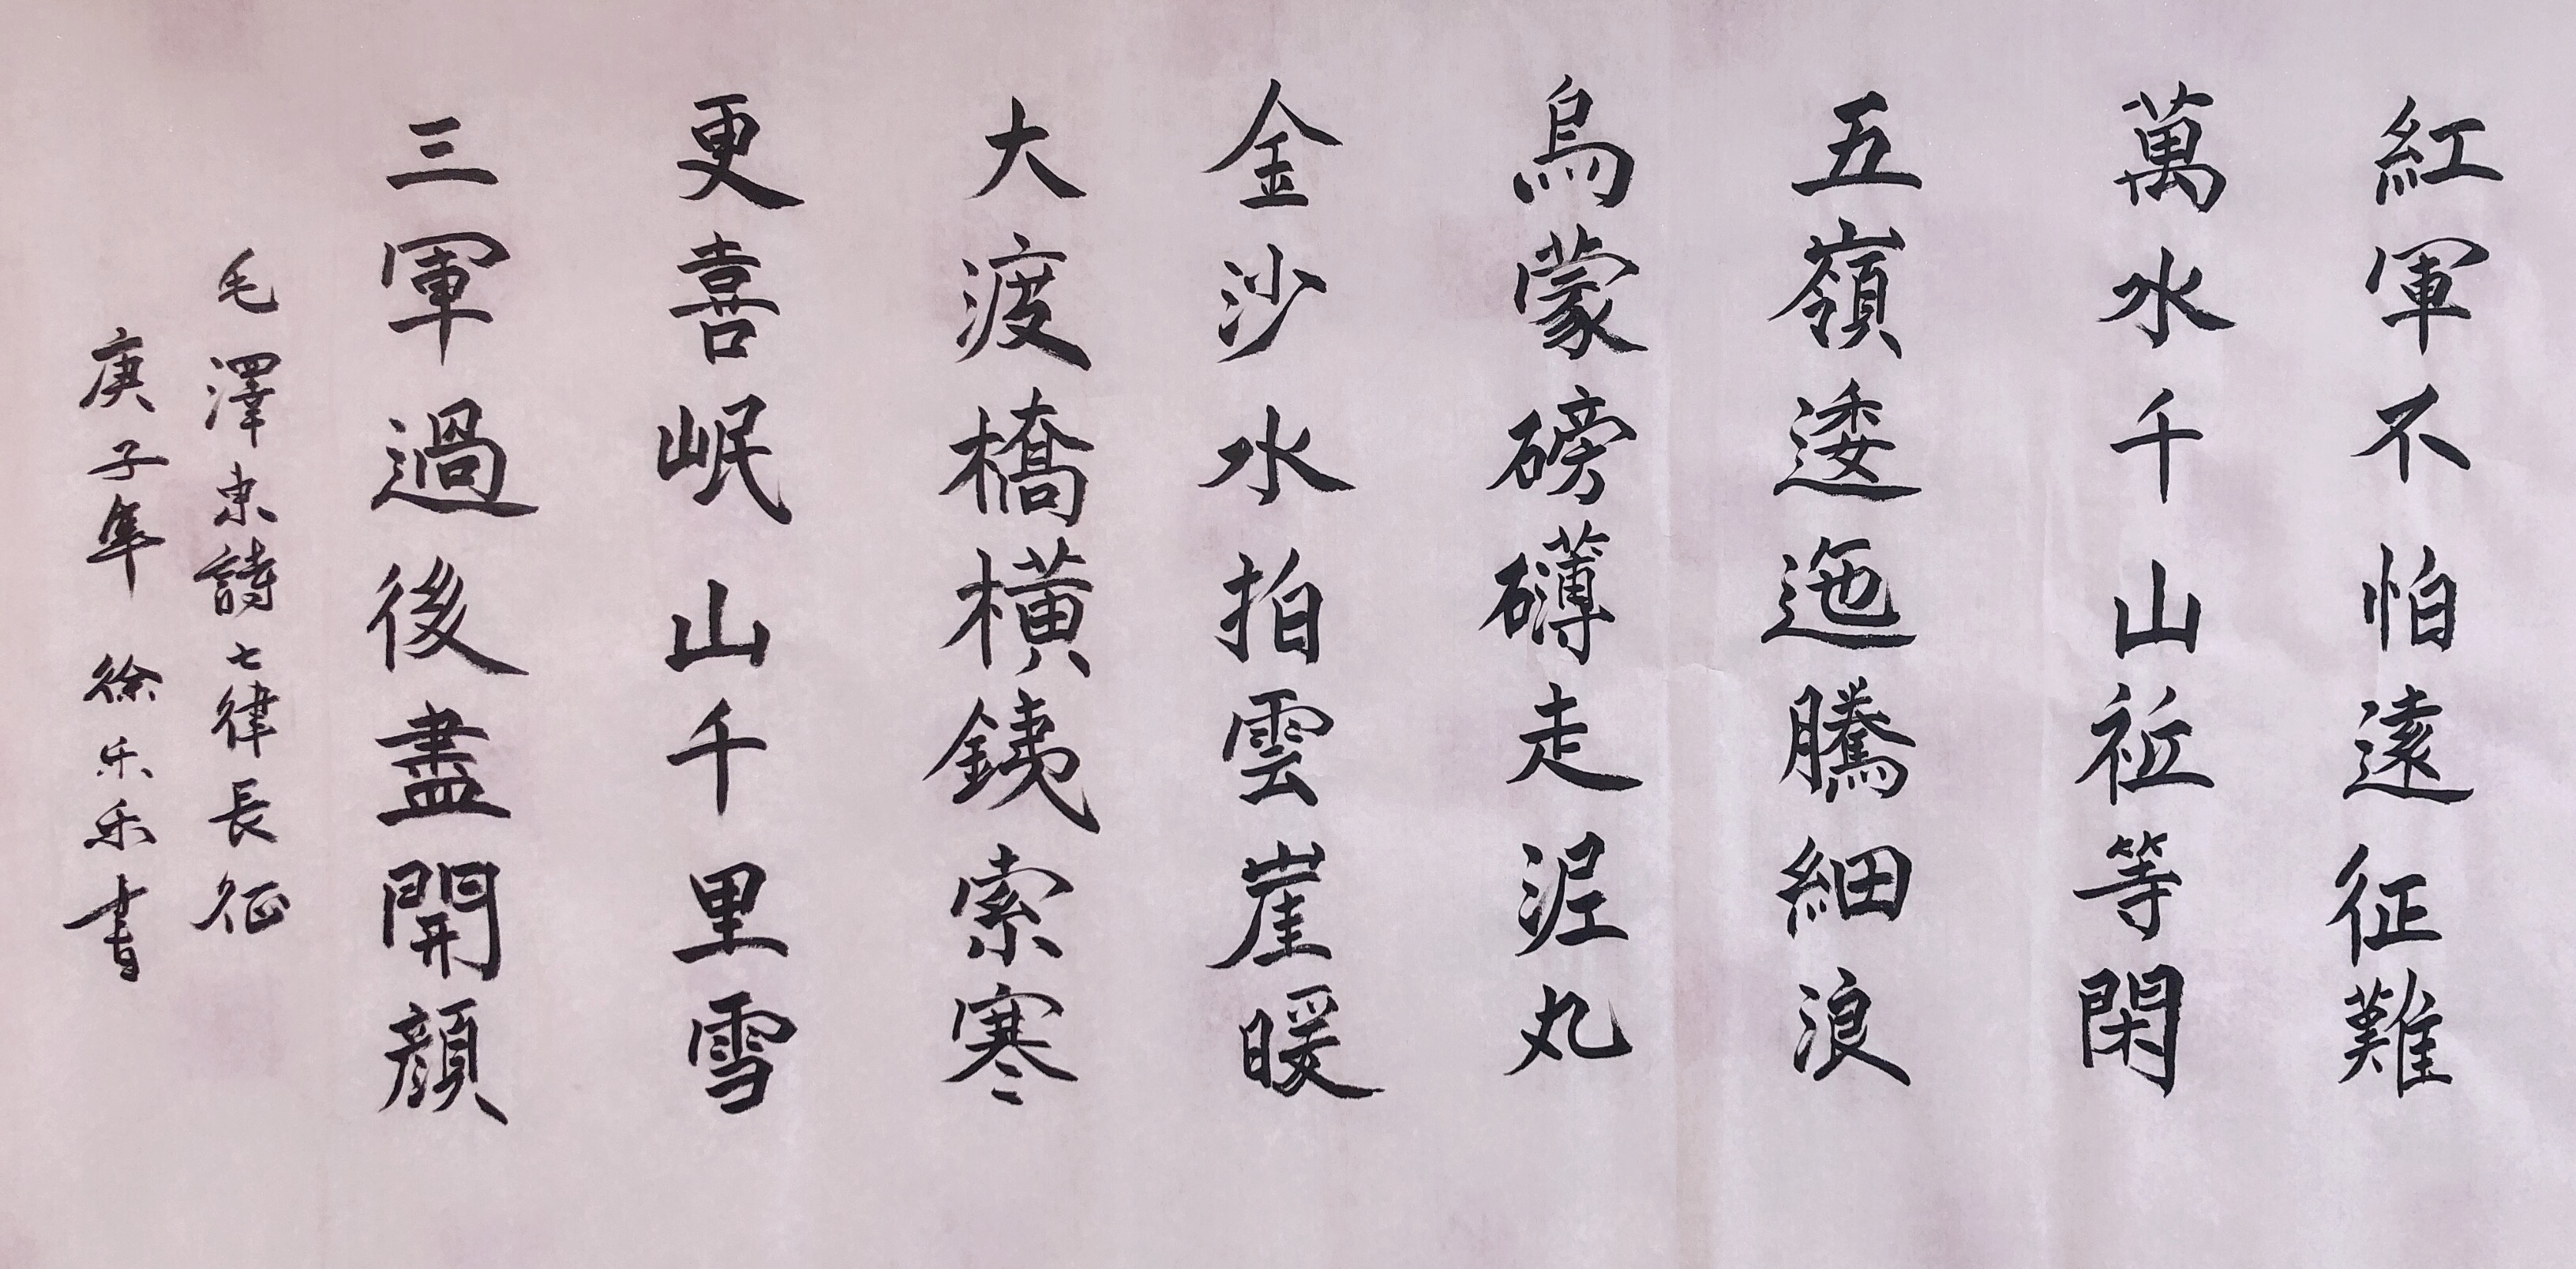 紅軍不怕遠征難
萬水千山祗等閑
五嶺逶迤騰細浪
烏蒙磅礴走泥丸
金沙水拍雲崖暖
大渡橋橫銕索寒
更喜岷山千里雪
三軍過後盡開顏
毛澤東詩七律長征
庚子年 徐乐乐書